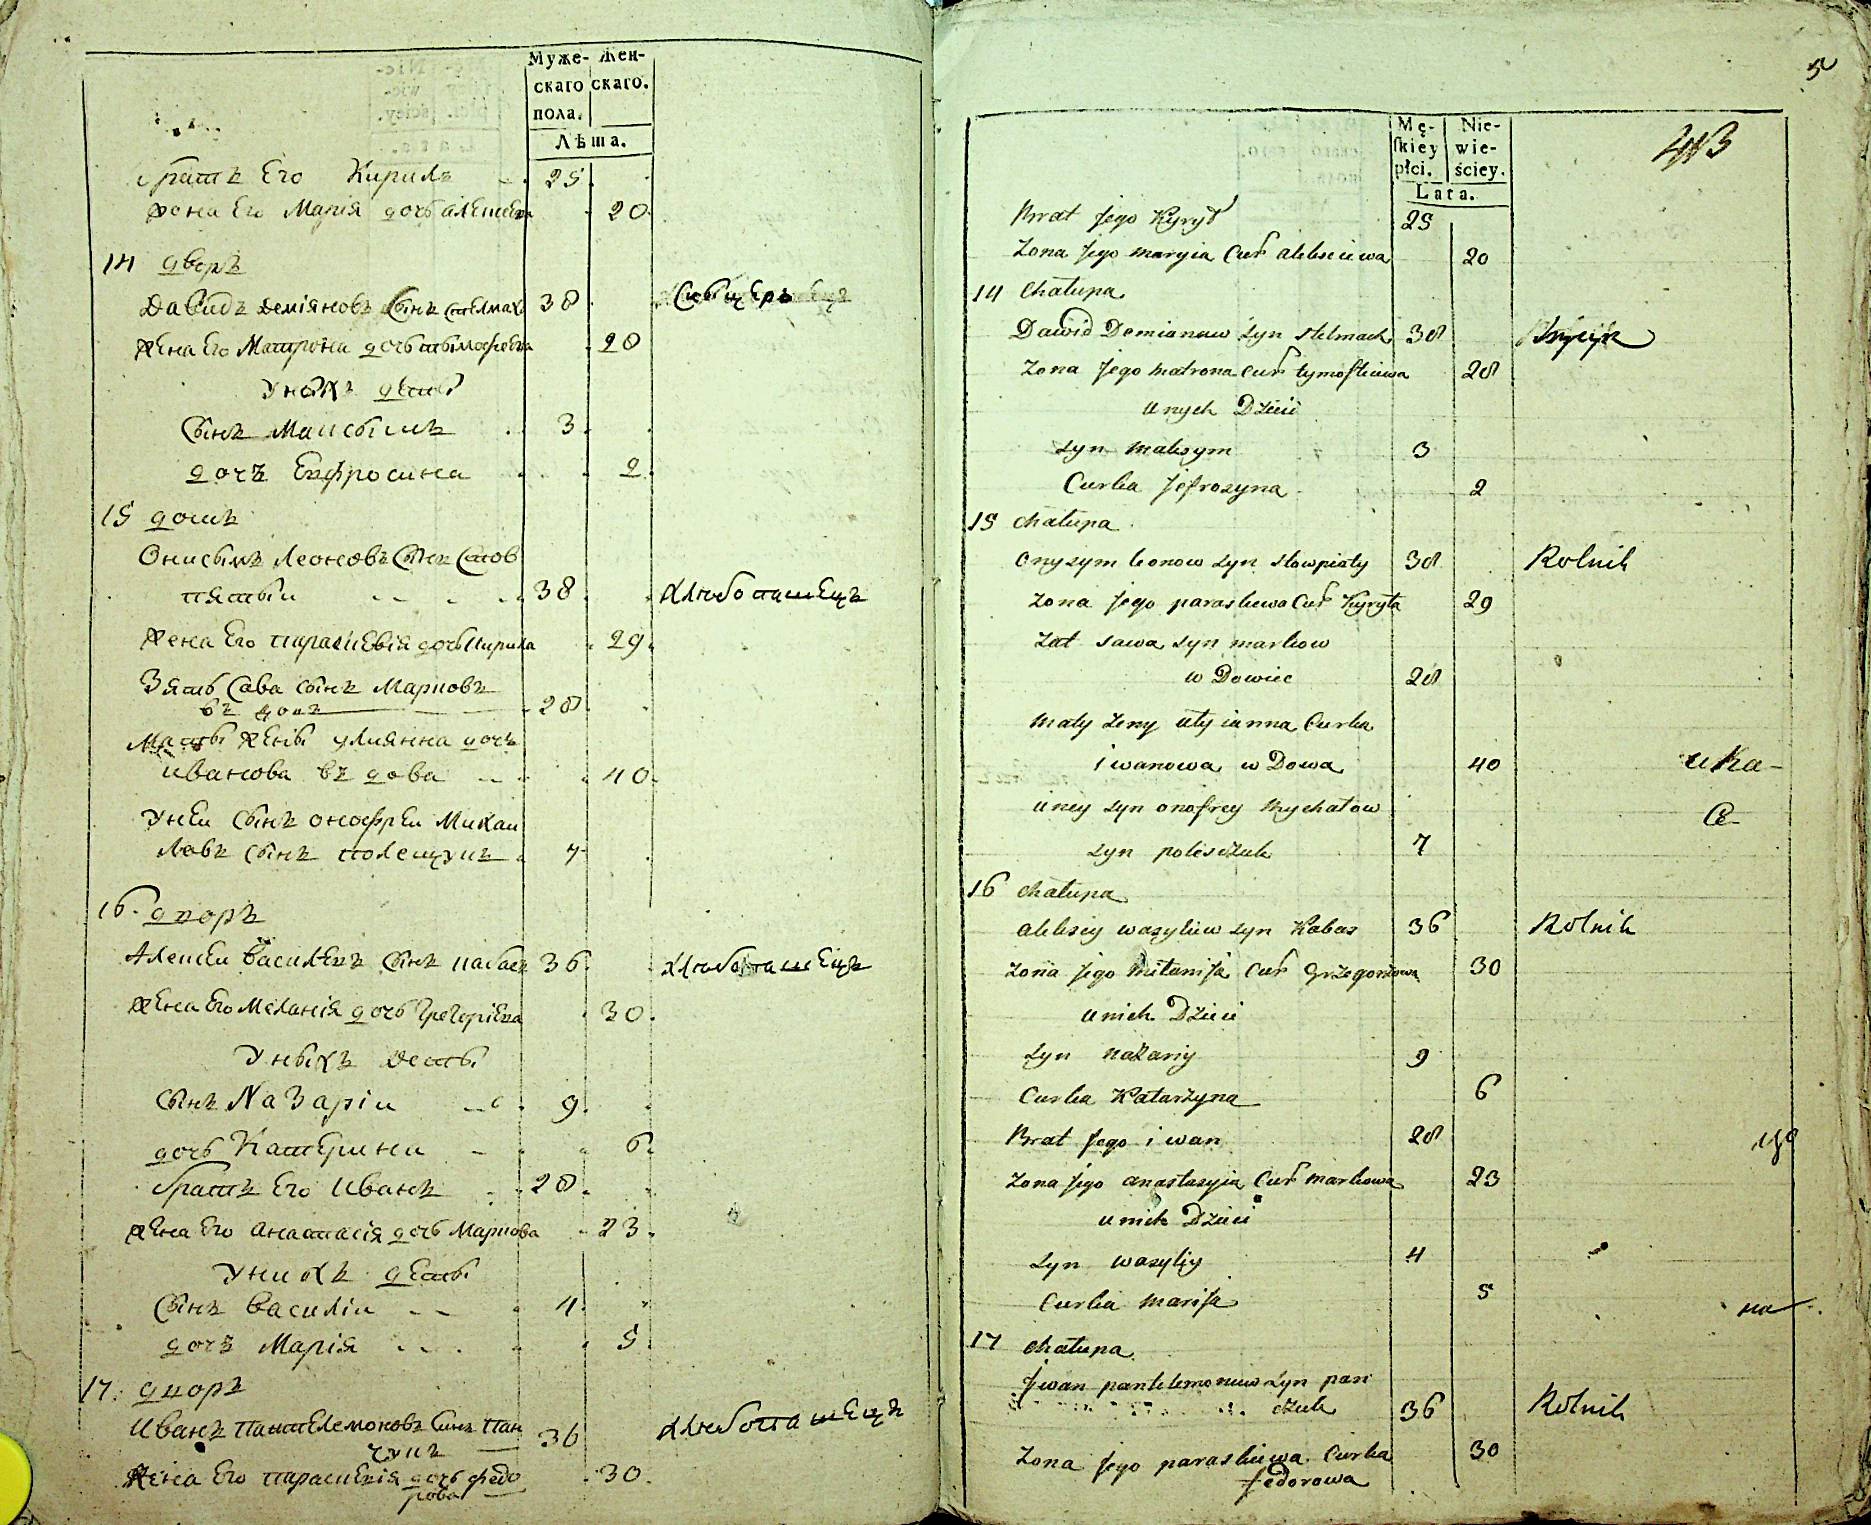 Муже- Жен-
скаго скаго.
пола.
Лѣта.
братъ Его Кирилъ 25
жона Его Мария дочь алексеева 20
14 дворъ
Давидъ демияновъ сынъ стелмах 38
жена Его Матрона дочь тымофеева 28
Уныхъ дети
сынъ Максымъ 3
дочъ Евфросина 2
15 домъ
Онисымъ Леоновъ сынъ стов
пятый 38 хлебопашецъ
жена Его параскевия дочь кирила 29
Зять Сава сынъ Марковъ
въ довъ 28
Мать жены улиянна дочь
иванова въ дова 40
Унеи сынъ онофреи Михаи
ловъ сынъ полещукъ 7
16. дворъ
Алексеи василевъ сынъ кабасъ 36 хлебопашецъ
жена Его Мелания дочь Григориева 30
Уныхъ дети
сынъ Назарiи 9
дочь Катерина 6
братъ Его Иванъ 28
жена Его анастасiя дочь Маркова 23
Унихъ дети
сынъ василiи 4
дочъ Марiя 5
17. дворъ
Иванъ пантелемоновъ синъ пан
чукъ 36 хлебопашецъ
жена Его параскевiя дочь федо
рова 30
5
413
Mę- Nie-
skiey wie-
płci. ściey.
Lata.
Brat jego Kyrył 25
Zona jego maryia Cur alekseiewa 20
14 Chałupa
Dawid Demianow syn stelmach 38
Zona jego matrona cur tymofieiewa 28
u nych Dzieci
syn maksym 3
Curka jefrozyna 2
15 chałupa
onyzym leonow syn stowpiaty 38 Rolnik
zona jego paraskewa Cur Kyryła 29
zat sawa syn markow
w Dowiec 28
maty zeny ulyianna Curka
iwanowa w Dowa 40
uney syn onofrey mychałow
syn polesczuk 7
16 chałupa
aleksiey wasylew syn Kabas 36 Rolnik
zona jego miłanija Cur Grzegorzowa 30
u nich Dzieci
syn nazariy 9
Curka Katarzyna 6
Brat jego iwan 28
zona jego anastasyia Cur markowa 23
u nich Dzieci
syn wasyliy 4
Curka marija 5
17 chałupa
jwan pantelemonow syn pan
czuk 36 Rolnik
Zona jego paraskiewa Curka
fedorowa 30